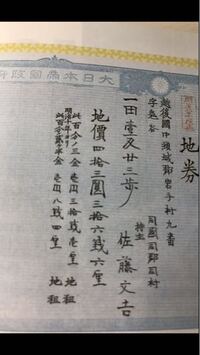 大日本帝國政府
地券
明治十年改正
越後國中頸城郡岩手村九番
字兎谷
一田壹反廿三歩
同國同郡同村
持主 佐藤文吉
地價四拾三圓三拾六錢六厘
此百分ノ三金 壹円三拾錢 地租
明治十年ヨリ
此百分ノ二ヶ半金 壹円八錢四厘 地租